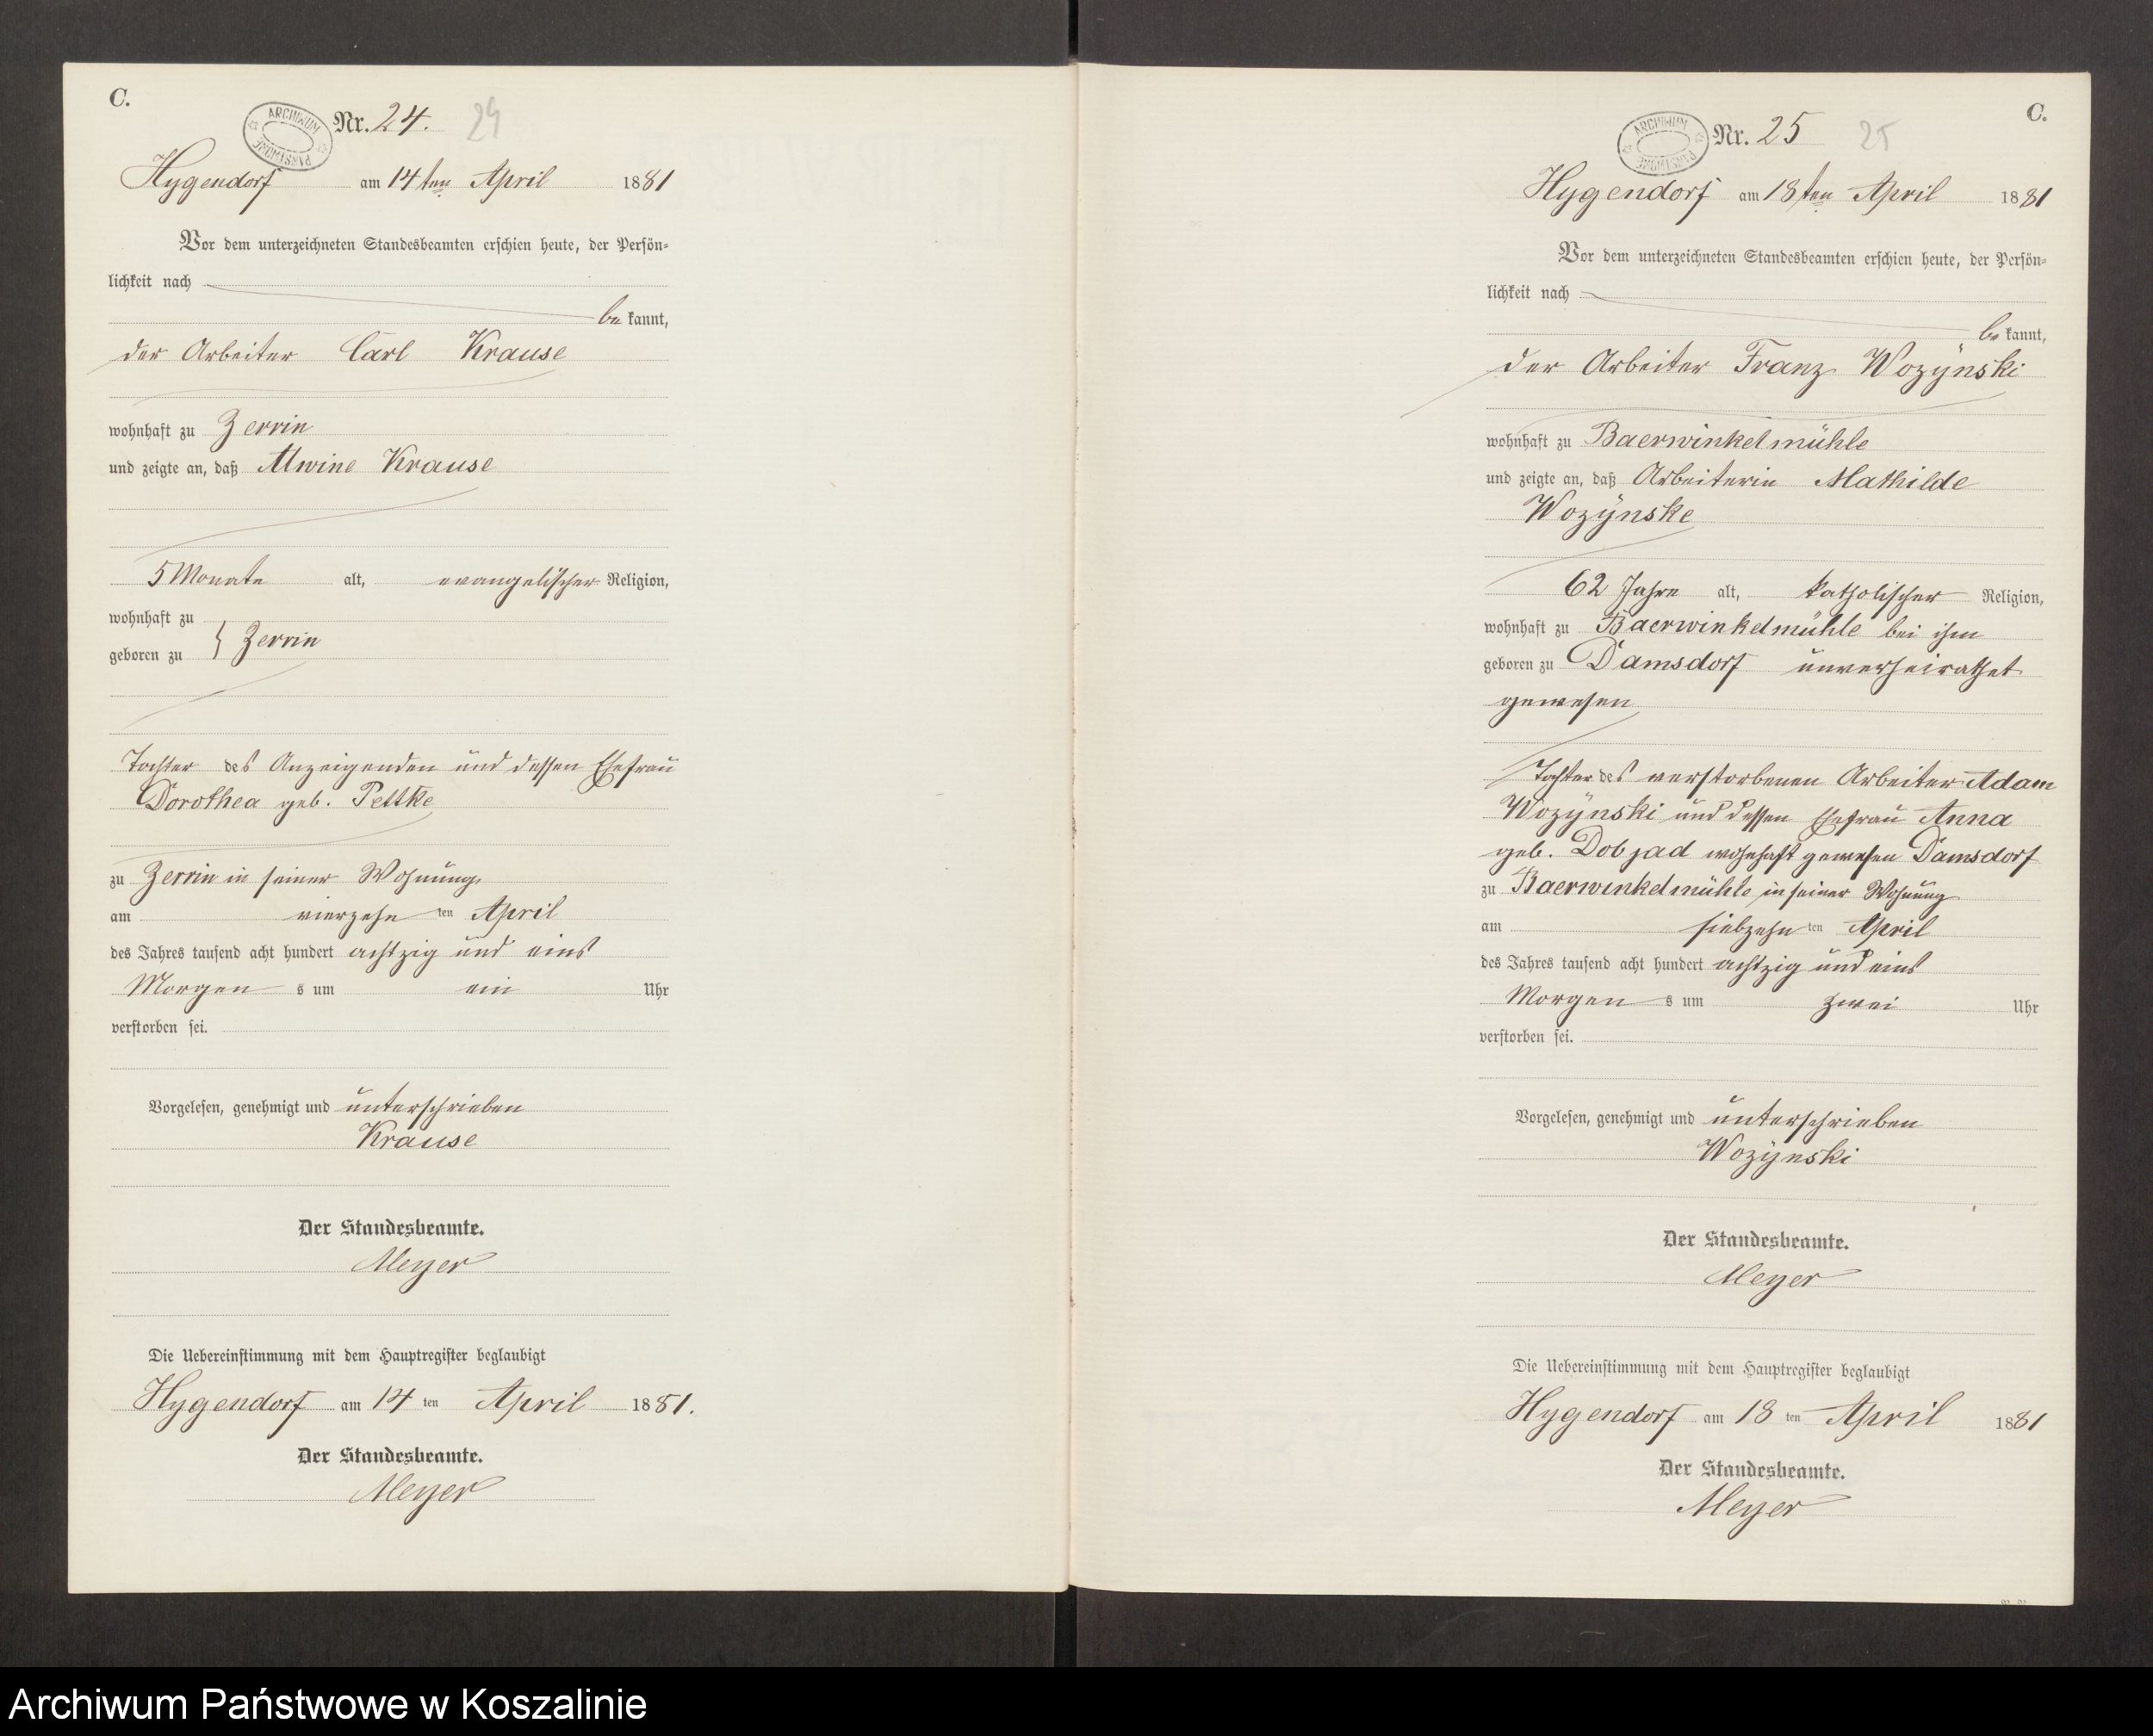 C.
ARCHIWUM PAŃSTWOWE
Nr. 24. 24
Hygendorf am 14ten April 1881
Vor dem unterzeichneten Standesbeamten erschien heute, der Persön-
lichkeit nach
be kannt,
der Arbeiter Carl Krause
wohnhaft zu Zerrin
und zeigte an, daß Alwine Krause
5 Monate alt, evangelischer Religion,
wohnhaft zu
geboren zu } Zerrin
Tochter des Anzeigenden und dessen Ehefrau
Dorothea geb. Pettke
zu Zerrin in seiner Wohnung
am vierzehn ten April
des Jahres tausend acht hundert achtzig und eins
Morgen s um ein Uhr
verstorben sei.
Vorgelesen, genehmigt und unterschrieben
Krause
Der Standesbeamte.
Meyer
Die Uebereinstimmung mit dem Hauptregister beglaubigt
Hygendorf am 14 ten April 1881.
Der Standesbeamte.
Meyer
C.
ARCHIWUM PAŃSTWOWE
Nr. 25 25
Hygendorf am 18ten April 1881
Vor dem unterzeichneten Standesbeamten erschien heute, der Persön-
lichkeit nach
be kannt,
der Arbeiter Franz Wozÿnski
wohnhaft zu Baerwinkelmühle
und zeigte an, daß Arbeiterin Mathilde
Wozÿnske
62 Jahre alt, katholischer Religion,
wohnhaft zu Baerwinkelmühle bei ihm
geboren zu Damsdorf unverheirathet
gewesen
Tochter des verstorbenen Arbeiter Adam
Wozÿnski und dessen Ehefrau Anna
geb. Dobjad wohnhaft gewesen Damsdorf
zu Baerwinkelmühle in seiner Wohnung
am siebzehn ten April
des Jahres tausend acht hundert achtzig und eins
Morgen s um zwei Uhr
verstorben sei.
Vorgelesen, genehmigt und unterschrieben
Wozÿnski
Der Standesbeamte.
Meyer
Die Uebereinstimmung mit dem Hauptregister beglaubigt
Hygendorf am 18 ten April 1881
Der Standesbeamte.
Meyer
Archiwum Państwowe w Koszalinie